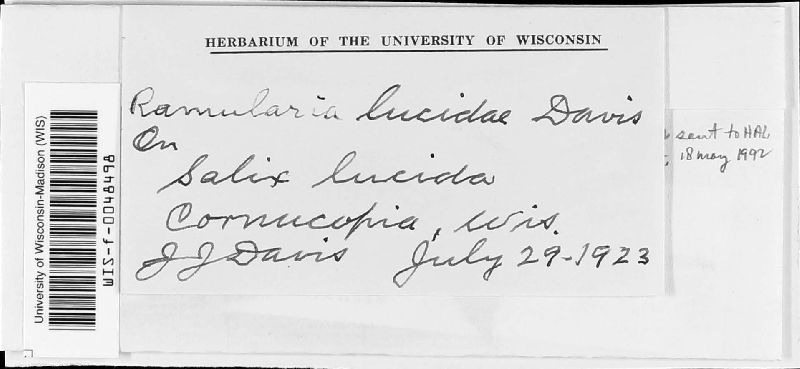 HERBARIUM OF THE UNIVERSITY OF WISCONSIN
Ramularia lucidae Davis
On
Salix lucida
Cornucopia, Wis.
J J Davis July 29-1923
sent to HAL
18 may 1992
University of Wisconsin-Madison (WIS)
WIS-f-0048498